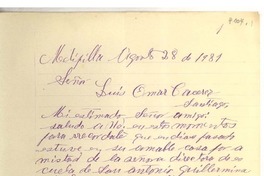 Melipilla Agosto 28 de 1931
Señor
Luis Omar Caceres
Santiago
Mi estimado Señor amigo
saludo a Ud en estos momentos
para recordarle que en dias pasado
estuve en su amable casa por a
mistad de la señora directora de es
cuela de San Antonio Guillermina